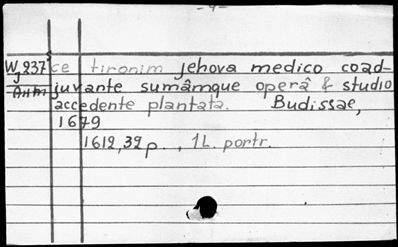 -4-
W 237 ce tironim Jehova medico coad-
J juvante sumâmque operâ & studio
Anm accedente plantata. Budissae,
1679
1612,32p. , 1L. portr.